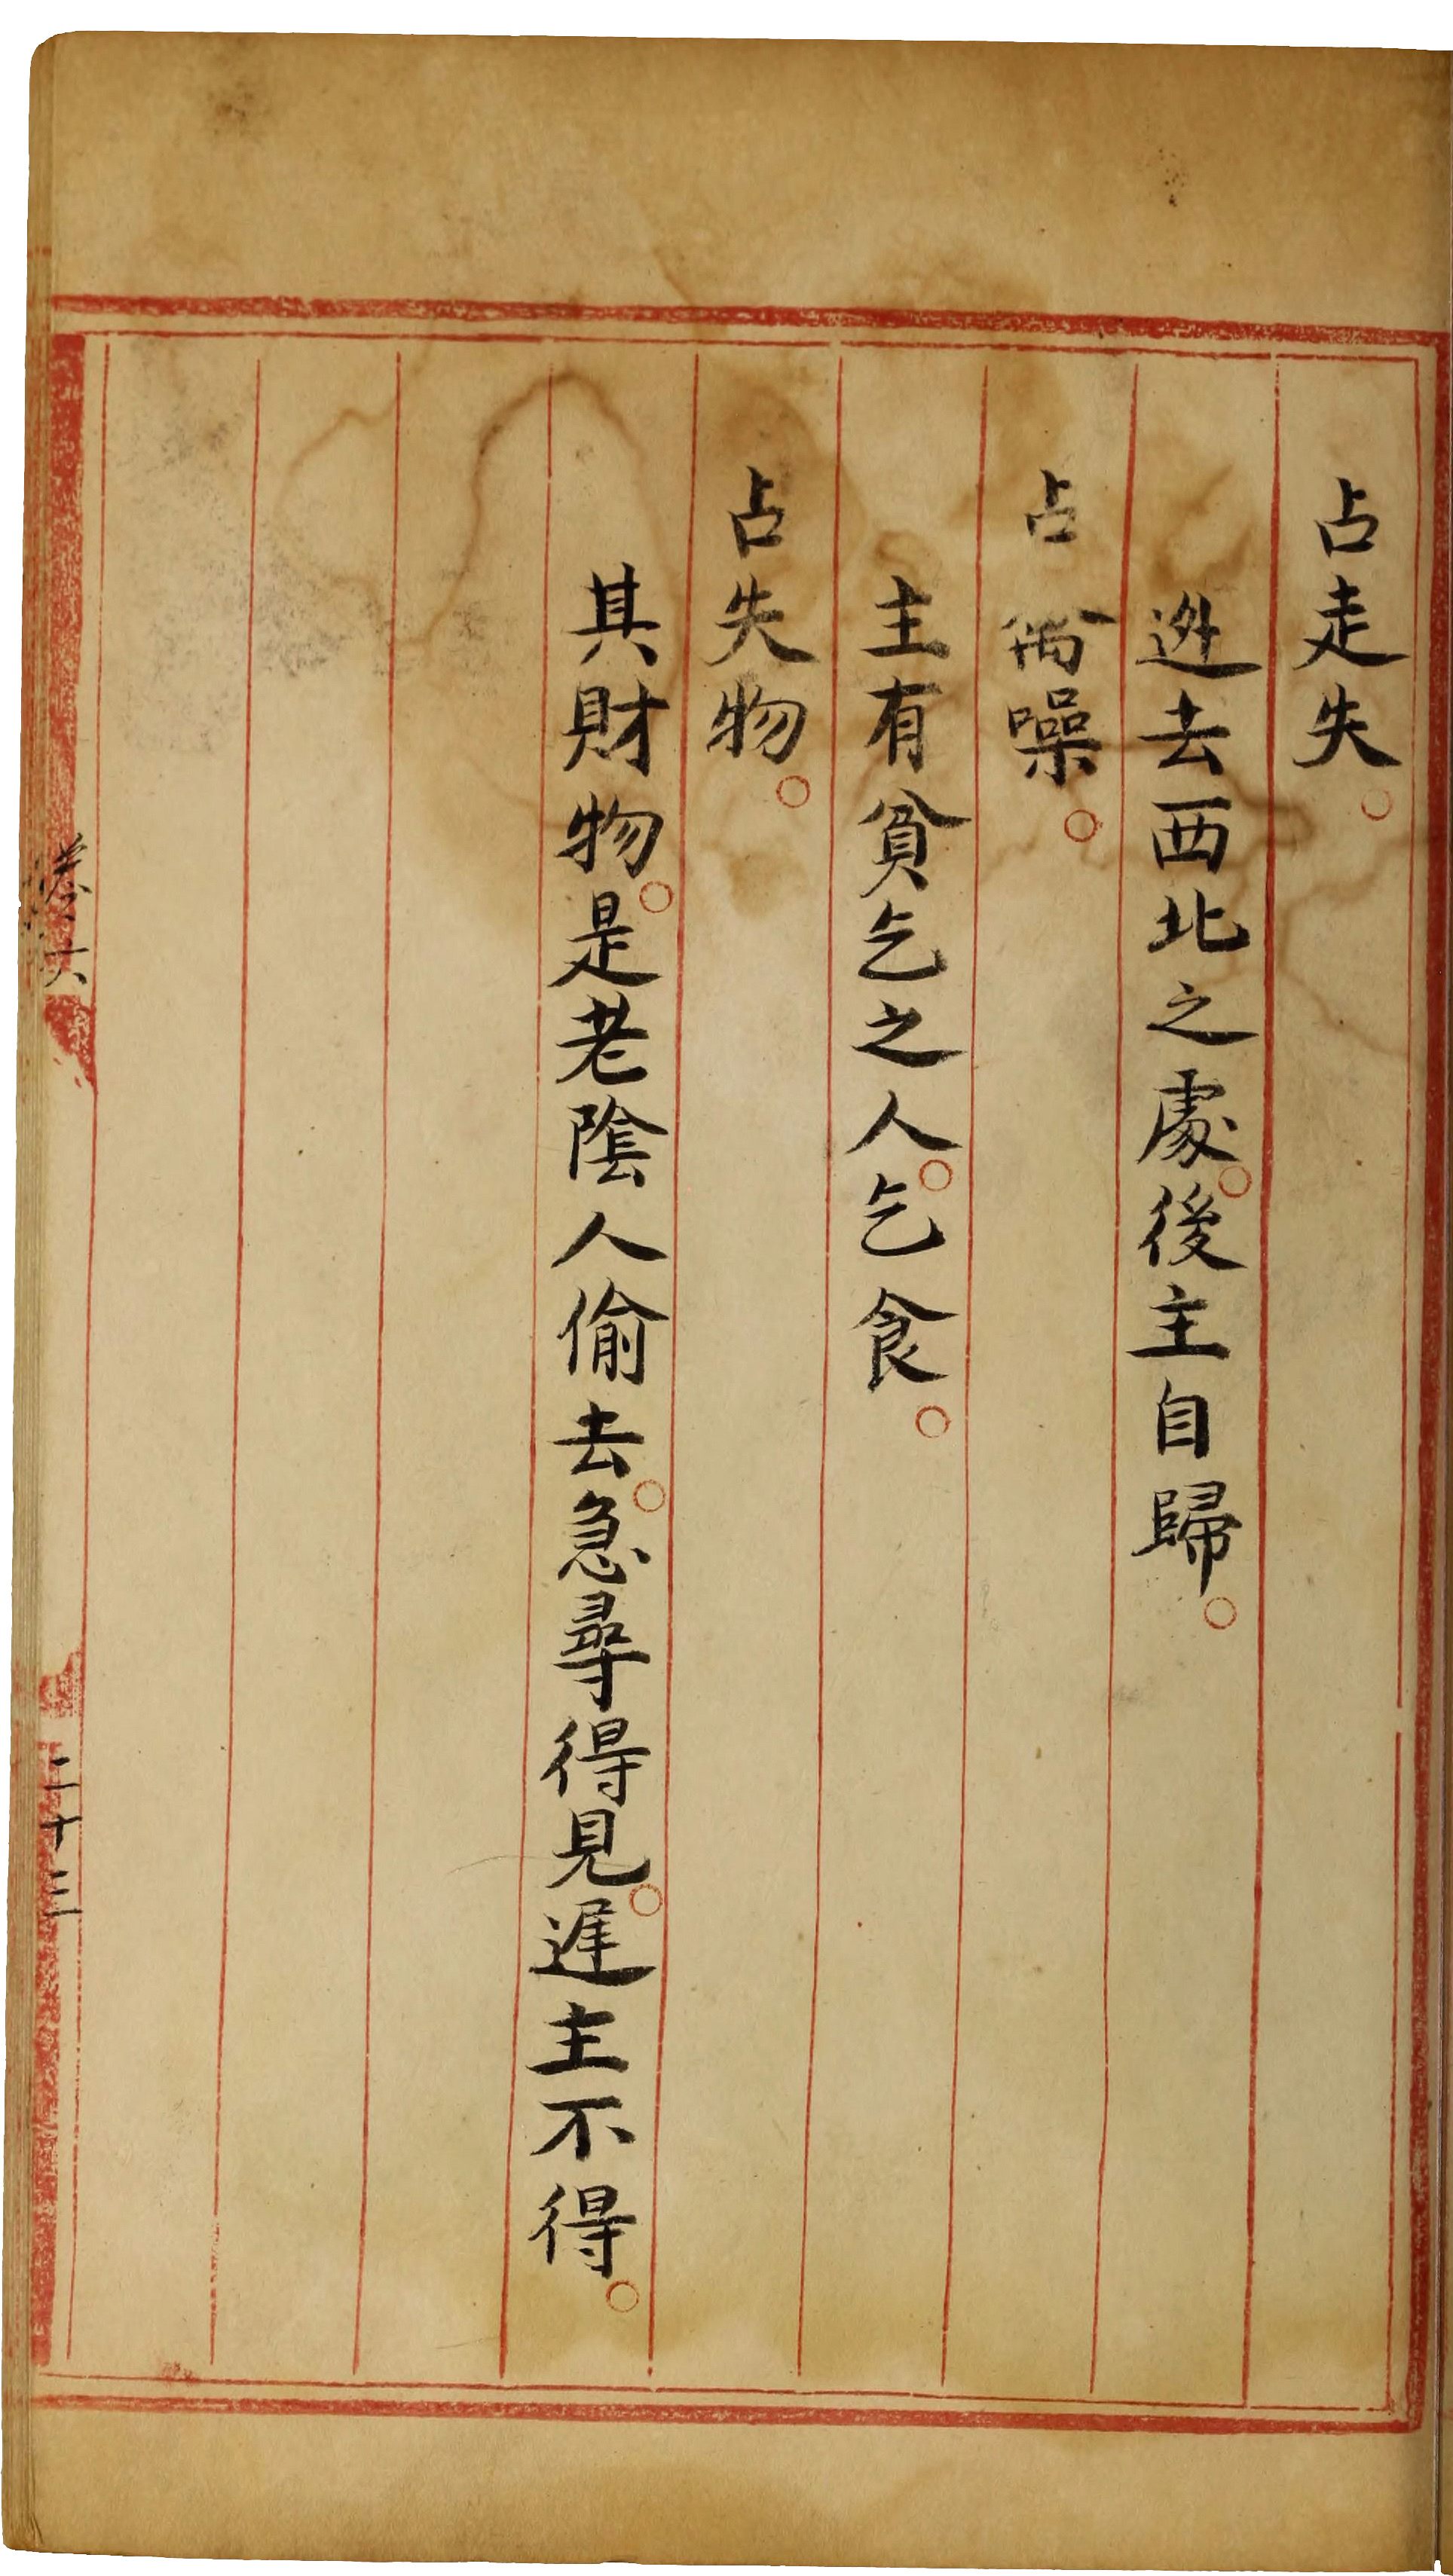 占走失。
迯去西北之處。後主自歸。
占噪。
主有貧乞之人。乞食。
占失物。
其財物。是老陰人偷去。急尋得見。遲主不得。
卷六
二十三